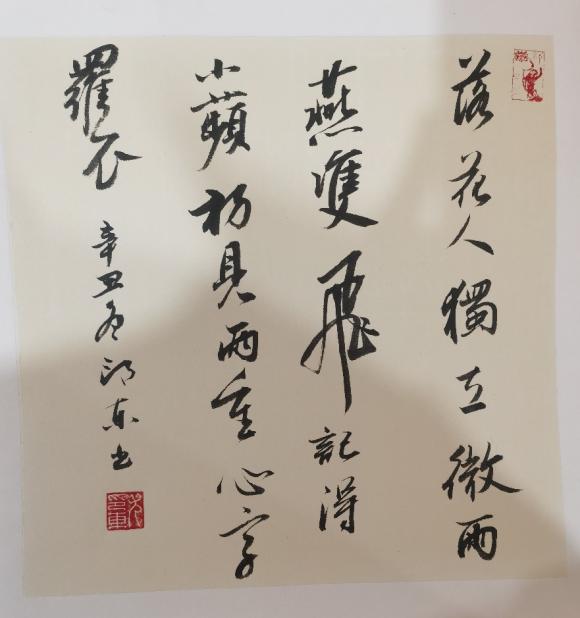 落花人獨立微雨
燕雙飛記得
小蘋初見兩重心字
羅衣 辛丑 东书